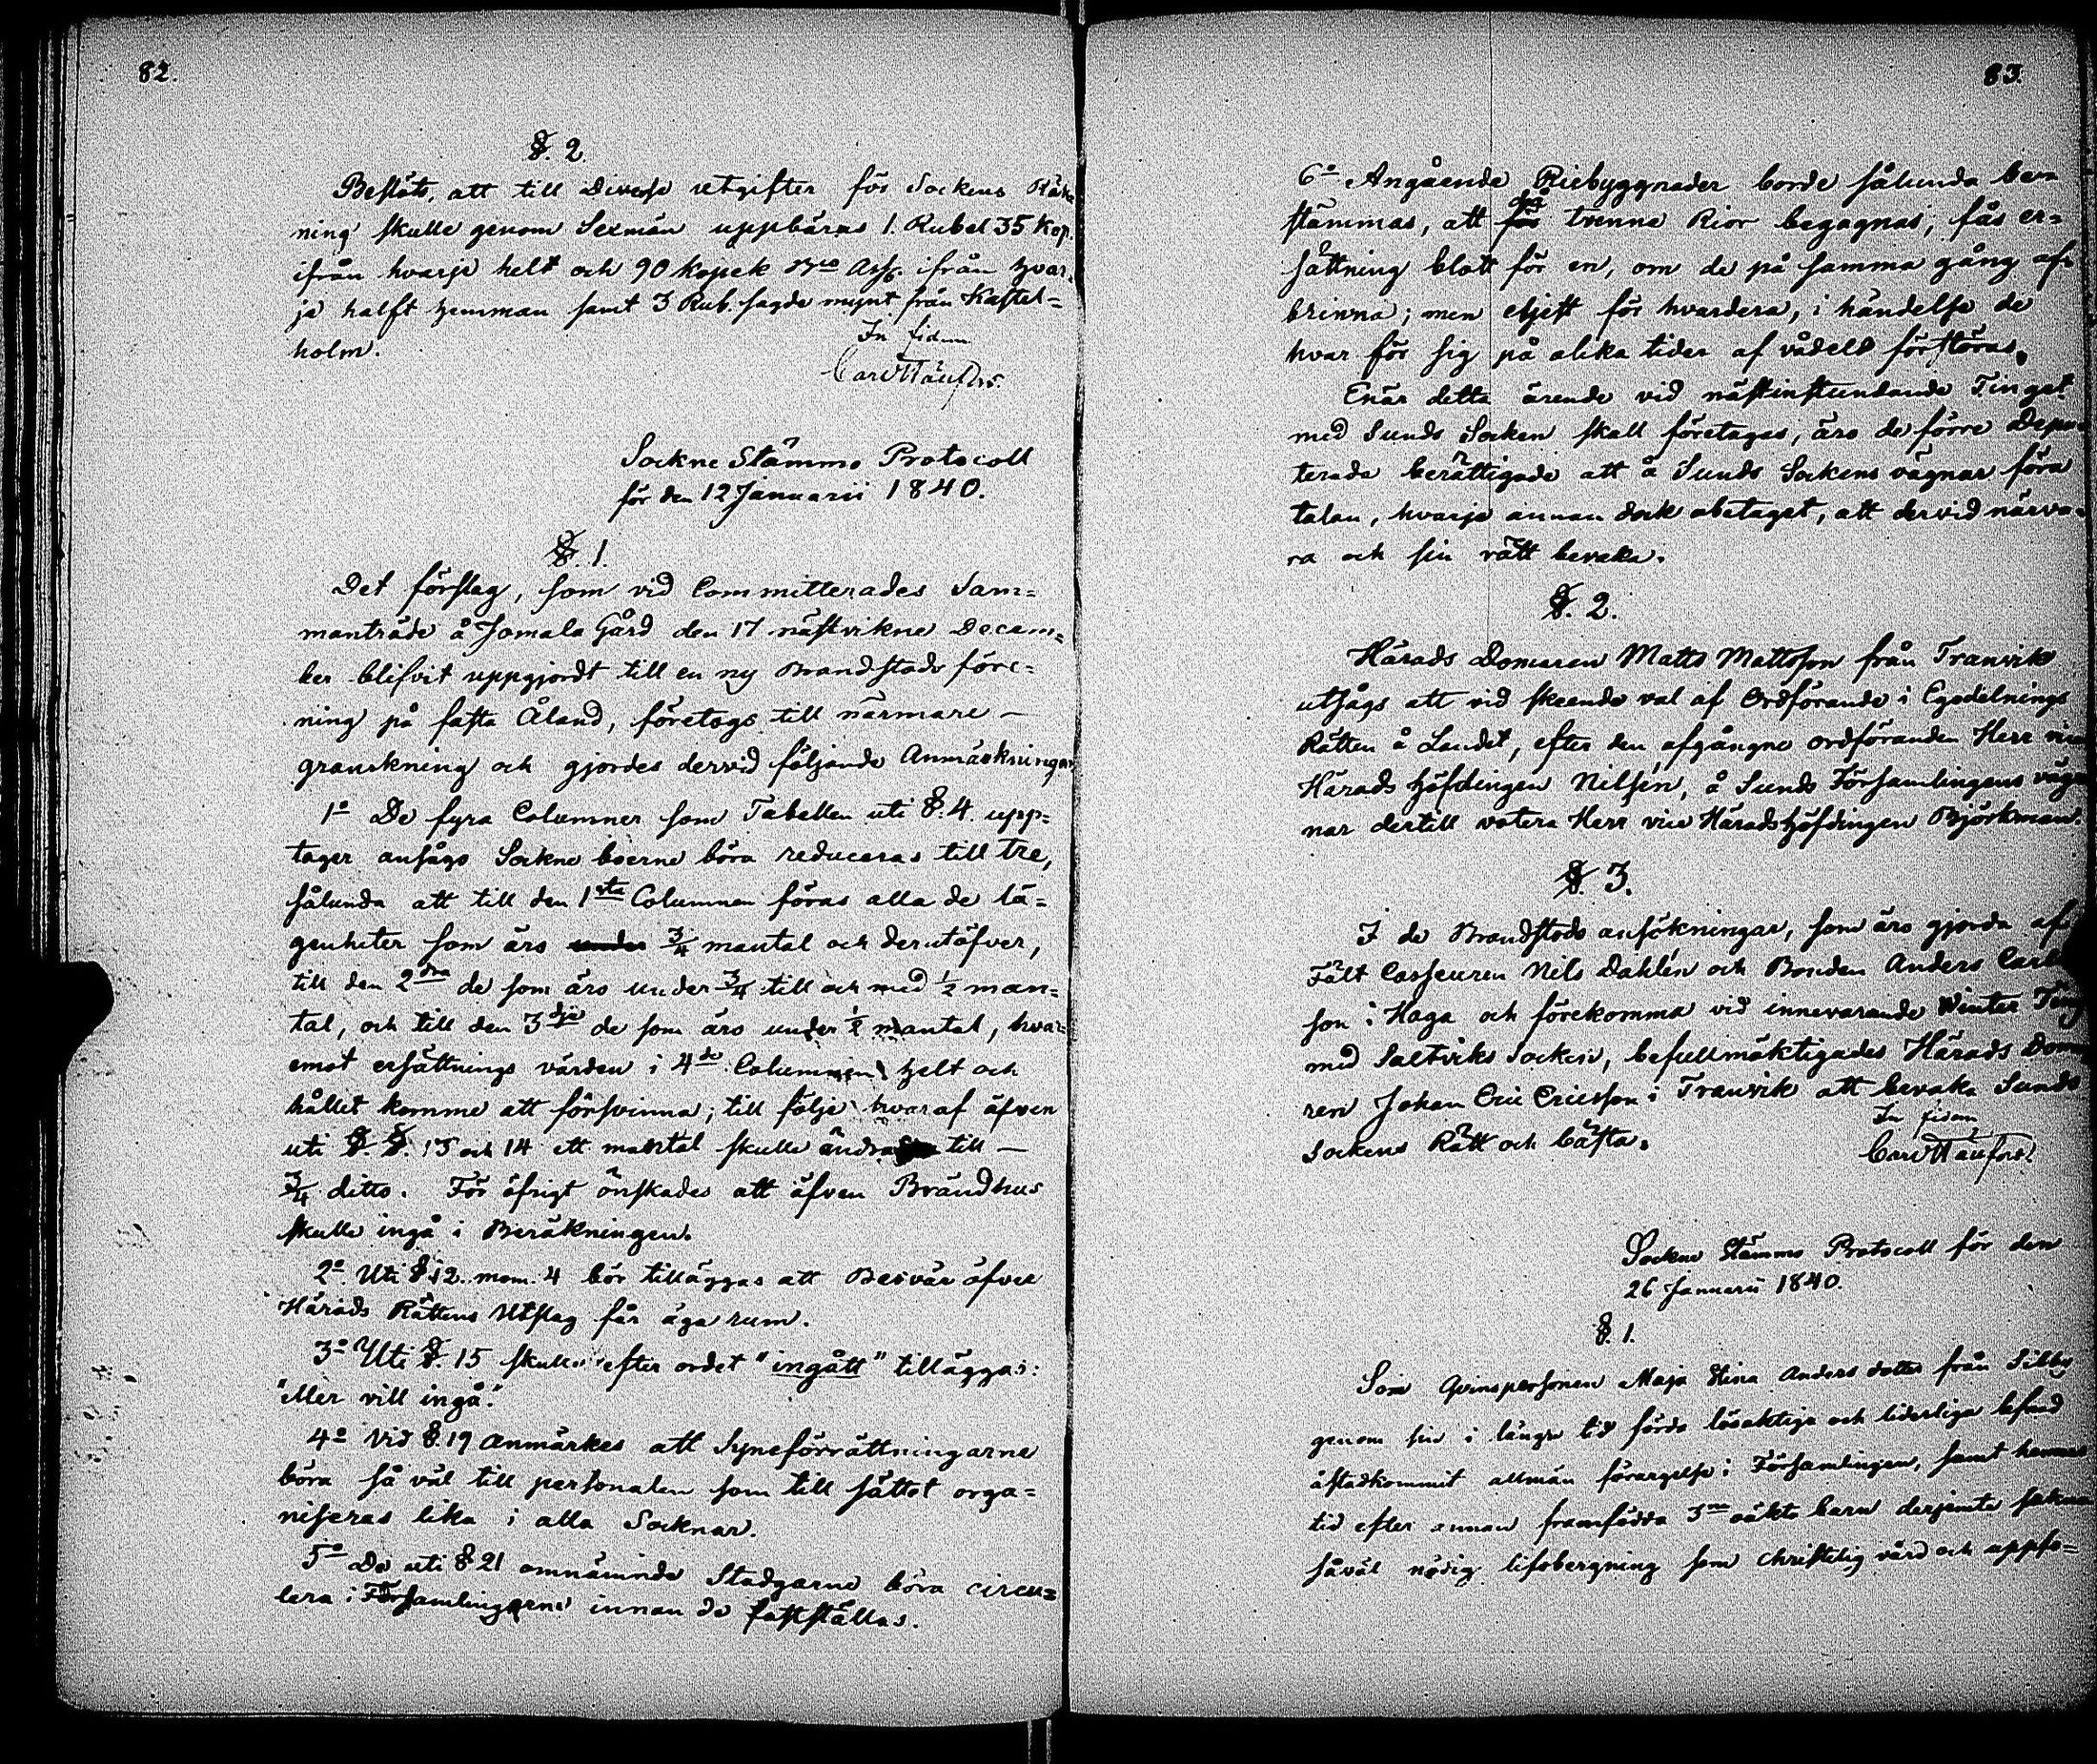 82.
§. 2.
Beslöts, att till Diverse utgifter för Sockens Räk=
ning skulle genom Sexmän uppbäras 1. Rubel 35 Kop.
ifrån hvarje helt och 90 kopek B:co Ass. ifrån hvar=
je halft hemman samt 3 Rub. sagde mynt från Kastel=
holm.
In fidem
Sockne Stämmo Protocoll
för den 12 Januarii 1840.
§. 1.
Det förslag, som vid Committerades Sam=
manträde å Jomala Gård den 17 nästvikne Decem=
ber blifvit uppgjordt till en ny Brandstods före=
ning på fasta Åland, företogs till närmare –
granskning och gjordes dervid följande Anmärkningar
1:o De fyra Columner som Tabellen uti §. 4. upp=
tager ansågo Sockne boerne böra reduceras till tre,
sålunda att till den 1sta Columnen föras alla de lä=
genheter som äro under 3/4 mantal och derutöfver,
till den 2dra de som äro under 3/4 till och med 1/2 man=
tal, och till den 3dje de som äro under 1/2 mantal, hvar=
emot ersättnings värden i 4de Columnen helt och
hållet komme att försvinna; till följe hvaraf äfven
uti §. §. 13 och 14 ett mantal skulle ändras till –
3/4 ditto. För öfrigt önskades att äfven Brändhus
skulle ingå i Beräkningen.
2:o Uti §. 12. mom. 4 bör tilläggas att Besvär öfver
Härads Rättens Utslag får äga rum.
3:o Uti §. 15 skulle efter ordet "ingått" tilläggas:
"eller vill ingå."
4:o Vid §. 19 anmärkes att Syneförrättningarne
böra så väl till personalen som till sättet orga=
niseras lika i alla Socknar.
5:o De uti § 21 omnämnde Stadgarne böra circu=
lera i Församlingarne innan de fastställas.
83.
6:o Angående Riebyggnader borde sålunda be=
stämmas, att för då trenne Rior begagnas, fås er=
sättning blott för en, om de på samma gång af=
brinna; men eljest för hvardera, i händelse de
hvar för sig på olika tider af vådeld förstöras.
Enär detta ärende vid nästinstundande Tinget
med Sunds Socken skall företagas, äro de förre Depu=
terade berättigade att å Sunds Sockens vägnar föra
talan, hvarje annan dock obetaget, att dervid närva=
ra och sin rätt bevaka.
§. 2.
Härads Domaren Matts Mattsson från Tranvik
utsågs att vid skeende val af Ordförande i Egodelnings
Rätten å Landet, efter den afgångne ordföranden Herr vice
Härads höfdingen Nilsén, å Sunds Församlingens väg
nar dertill votera Herr vice Häradshöfdingen Björkman.
§. 3.
I de Brandstods ansökningar, som äro gjorda af
Fält Casseuren Nils Dahlén och Bonden Anders Carl
son i Haga och förekomma vid innevarande Winter Ting
med Saltviks Socken, befullmäktigades Härads Doma
ren Johan Eric Ericsson i Tranvik att bevaka Sunds
sockens Rätt och bästa.
In fidem
Sockne Stämmo Protocoll för den
26 Januarii 1840.
§. 1.
Som Qvinspersonen Maja Stina Anders dotter från Sibby
genom sin i längre tid förda lösaktiga och liderliga lefnad
åstadkommit allmän förargelse i Församlingen, samt hennes
tid efter annan framfödda 3ne oäkta barn derjemte sakna
såväl nödig lifsbergning som christelig vård och uppfo=